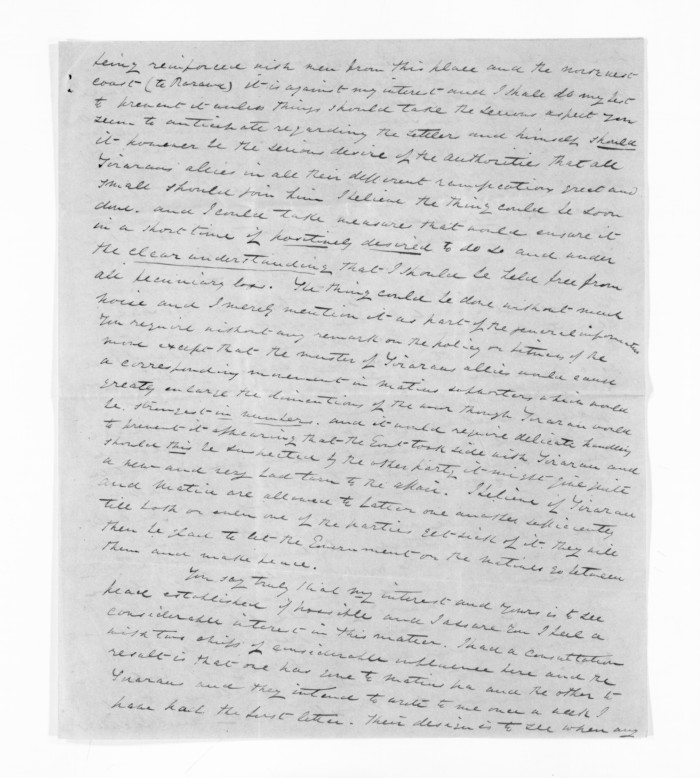 being reinforced with men from this place and the north west
coast (te Rarawa) it is against my interest and I shall do my best
to prevent it unless things should take the serious aspect you
seem to anticipate regarding the settlers and himself, should
it however be the serious desire of the authorities that all
Tirarau's allies in all their different ramifications great and
small should join him I believe the thing could be soon
done. and I could take measures that would ensure it
in a short time if positively desired to do so and under
the clear understanding that I should be held free from
all pecuniary loss. The thing could be done without much
noise and I merely mention it as part of the general information
you require without any remark on the policy or fitness of the
move except that the muster of Tirarau's allies would cause
a corresponding movement in Matius supporters which would
greatly enlarge the dimentions of the war though Tirarau would
be strongest in numbers. and it would require delicate handling
to prevent it appearing that the Govt took side with Tirarau and
should this be suspected by the other party it might give quite
a new and very bad turn to the affair. I believe if Tirarau
and Matiu are allowed to batter one another sufficiently
till both or even one of the parties get sick of it they will
then be glad to let the Government or the natives go between
them and make peace.
You say truly that my interest and yours is to see
peace established if possible and I assure you I feel a
considerable interest in this matter. I had a consultation
with two chiefs of considerable influence here and the
result is that one has gone to Matius pa and the other to
Tiraraus and they intend to write to me once a week I
have had the first letter. Their design is to see when any